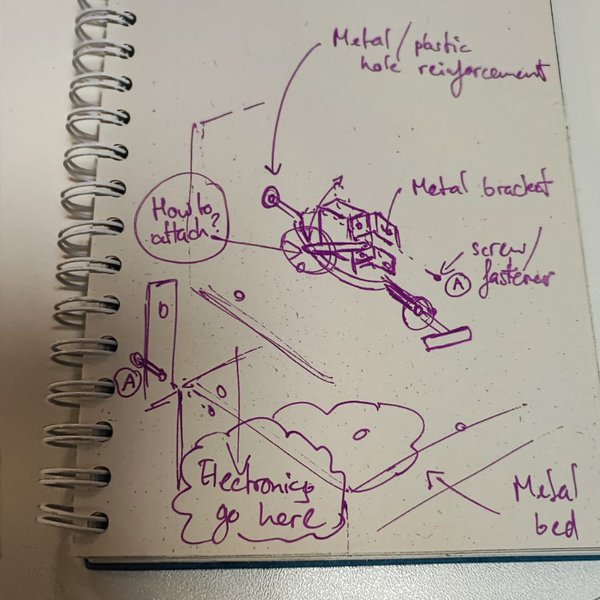 Metal/plastic
hole reinforcement
How to
attach?
Metal bracket
screw/
fastener
A
A
Electronics
go here
Metal
bed